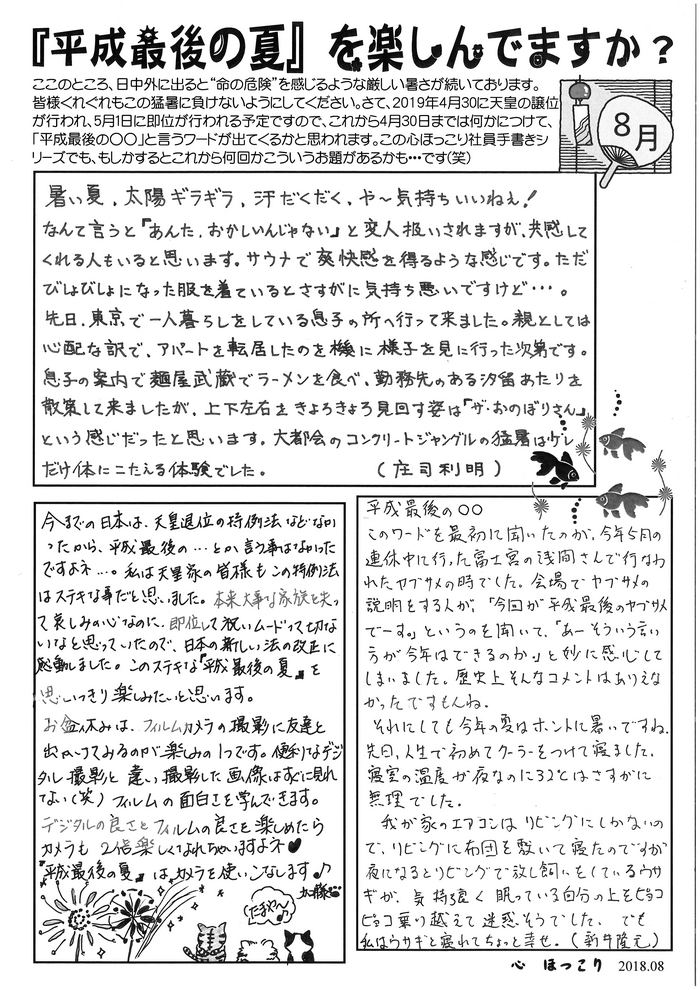 『平成最後の夏』を楽しんでますか？
ここのところ、日中外に出ると“命の危険”を感じるような厳しい暑さが続いております。
皆様くれぐれもこの猛暑に負けないようにしてください。さて、2019年4月30に天皇の譲位
が行われ、5月1日に即位が行われる予定ですので、これから4月30日までは何かにつけて、
「平成最後の〇〇」と言うワードが出てくるかと思われます。この心ほっこり社員手書きシ
リーズでも、もしかするとこれから何回かこういうお題があるかも…です(笑)
8月
暑い夏，太陽ギラギラ，汗だくだく，や～気持ちいいねぇ！
なんて言うと『あんた，おかしいんじゃない』と変人扱いされますが、共感して
くれる人もいると思います。サウナで爽快感を得るような感じです。ただ
びしょびしょになった服を着ているとさすがに気持ち悪いですけど・・・。
先日，東京で一人暮らしをしている息子の所へ行って来ました。親としては
心配な訳で、アパートを転居したのを機に様子を見に行った次第です。
息子の案内で麺屋武蔵でラーメンを食べ、勤務先のある汐留あたりを
散策して来ましたが、上下左右をきょろきょろ見回す姿は『ザ・おのぼりさん』
という感じだったと思います。大都会のコンクリートジャングルの猛暑はケレ
だけ体にこたえる体験でした。（庄司利明）
今までの日本は、天皇退位の特例法などなか
ったから、平成最後の…とか言う事はなかった
ですよネ…。私は天皇家の皆様もこの特例法
はステキな事だと思いました。本来大事な家族を失っ
て哀しみの心なのに、即位して祝いムードって切な
いなと思っていたので、日本の新しい法の改正に
感動しました。このステキな『平成最後の夏』を
思いっきり楽しみたいと思います。
お盆休みは、フィルムカメラの撮影に友達と
出かけてみるのが楽しみの1つです。便利なデジ
タル撮影と違い、撮影した画像はすぐに見れ
てない(笑) フィルムの面白さを学んできます。
デジタルの良さとフィルムの良さを楽しめたら
カメラも2倍楽しくなれちゃいますよネ♥
『平成最後の夏』はカメラを使いこなします♪
加藤
たまや～♪
平成最後の〇〇
このワードを最初に聞いたのが、今年5月の
連休中に行った富士宮の浅間さんで行なわ
れたヤブサメの時でした。会場でヤブサメの
説明をする人が、「今回が平成最後のヤブサメ
でーす。」というのを聞いて、「あーそういう言い
方が今年はできるのか。」と妙に感心して
しまいました。歴史上そんなコメントはありえな
かったですもんね。
それにしても今年の夏はホントに暑いですね。
先日、人生で初めてクーラーをつけて寝ました。
寝室の温度が夜なのに32℃とはさすがに
無理でした。
我が家のエアコンはリビングにしかないの
で、リビングに布団を敷いて寝たのですが
夜になるとリビングで放し飼いをしているウサ
ギが、気持ち良く眠っている自分の上をピョコ
ピョコ乗り越えて迷惑そうでした、でも
私はウサギと寝れてちょっと幸せ。（新井隆元）
心 ほっこり 2018.08